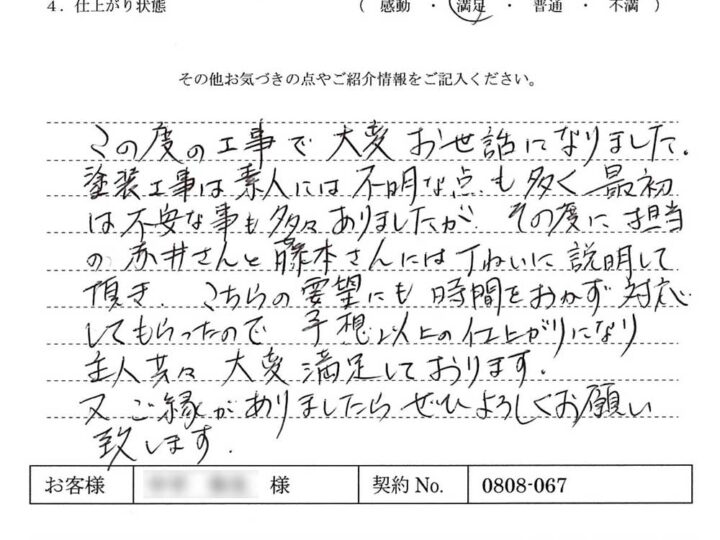 4．仕上がり状態　（ 感動 ・ 満足 ・ 普通 ・ 不満 ）
その他お気づきの点やご紹介情報をご記入ください。
この度の工事で 大変 お世話になりました。
塗装工事は素人には 不明な点も多く 最初
は不安な事も多々ありましたが その度に 担当
の 赤井さんと 藤本さんには 丁ねいに 説明して
頂き、こちらの要望にも 時間をおかず 対応
してもらったので 予想以上の仕上がりになり
主人共々 大変 満足しております。
又 ご縁が ありましたら ぜひ よろしくお願い
致します。
お客様　様　契約 No.　0808-067